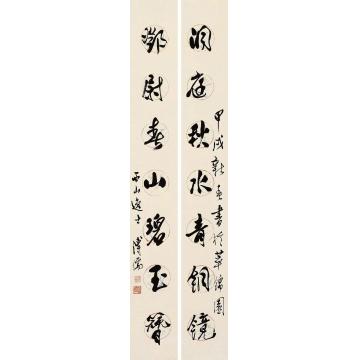 洞庭秋水青銅鏡
甲戌新春書於萃錦園
鄧尉春山碧玉簪
西山逸士溥儒